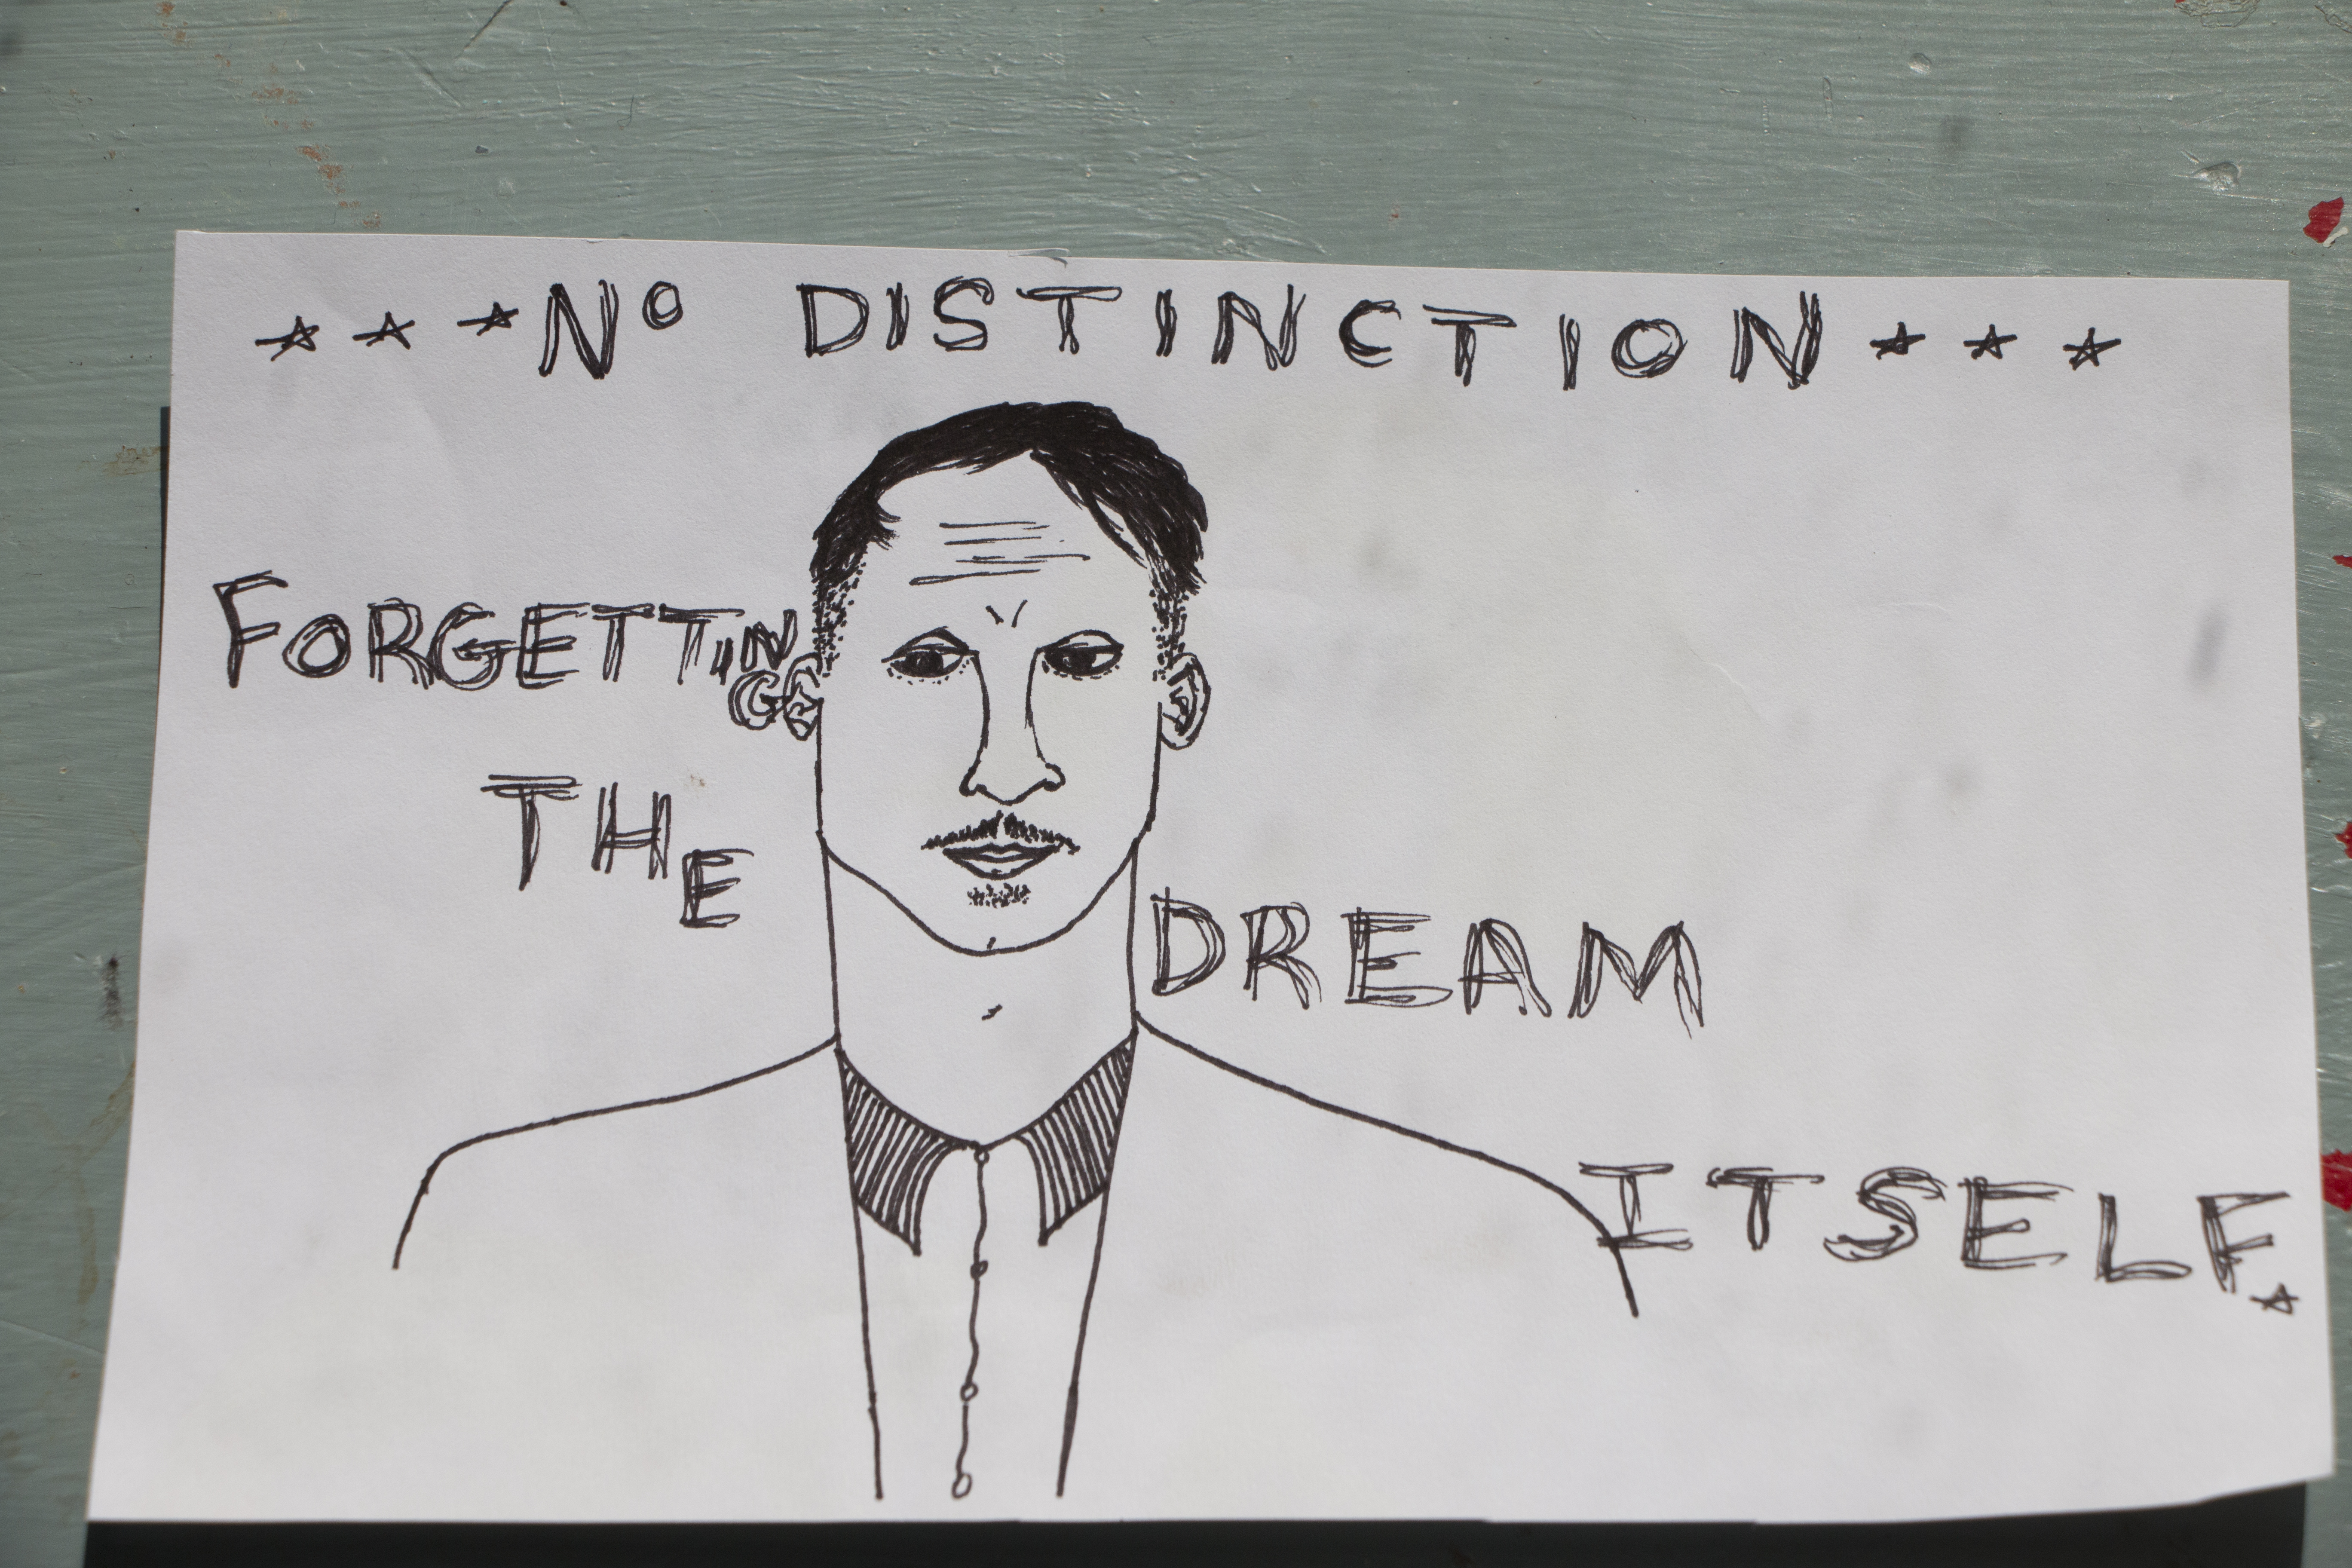 No DISTINCTION
FORGETTING
THE
DREAM
ITSELF.